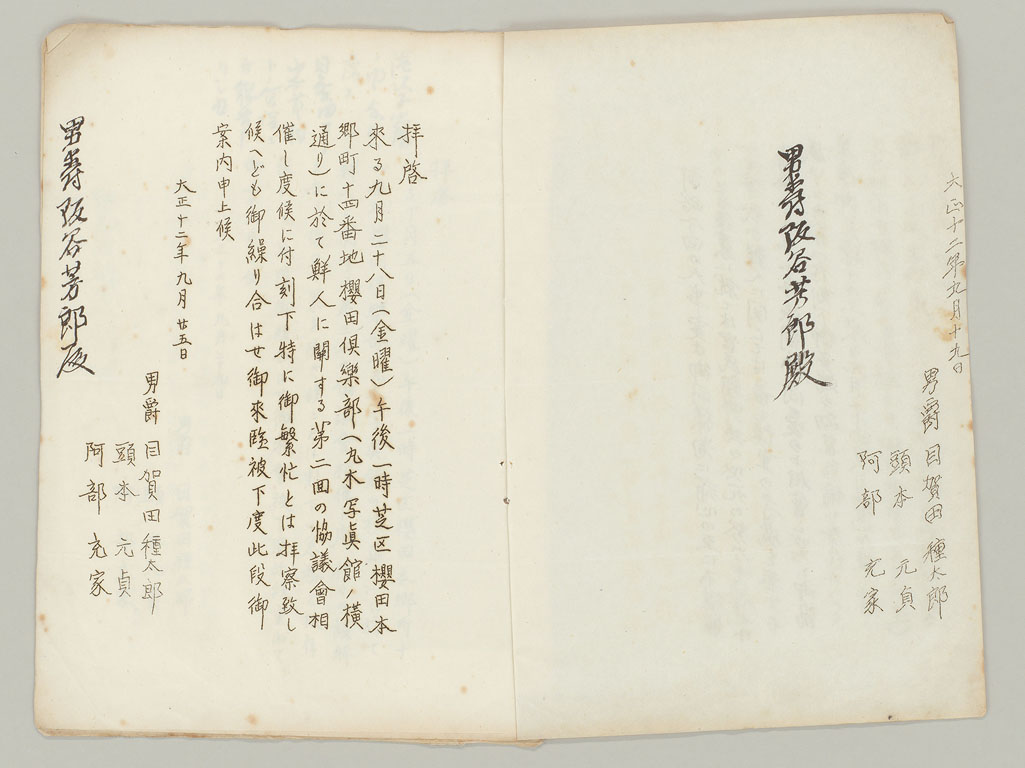 大正十二年九月十九日
男爵 目賀田種太郎
頭本 元貞
阿部 充家
男爵阪谷芳郎殿
拝啓
来る九月二十八日(金曜)午後一時芝区櫻田本
郷町十四番地櫻田倶樂部(丸木写眞館ノ横
通り)に於て鮮人に関する第二回の協議會相
催し度候に付刻下特に御繁忙とは拝察致し
候へども御繰り合はせ御来臨被下度此段御
案内申上候
大正十二年九月廿五日
男爵 目賀田種太郎
頭本 元貞
阿部 充家
男爵阪谷芳郎殿